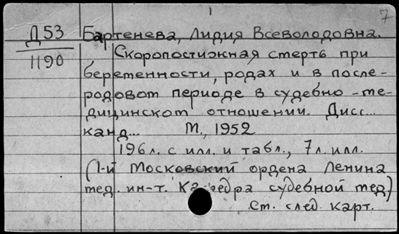 7
Д53
1190
Бартенева, Лидия Всеволодовна.
Скоропостижная смерть при
беременности, родах и в после-
родовом периоде в судебно-ме-
дицинском отношении. Дисс...
канд... М., 1952
196л. с илл. и табл., 7л. илл.
(1-й Московский ордена Ленина
мед. ин-т. Кафедра судебной мед.)
См. след. карт.